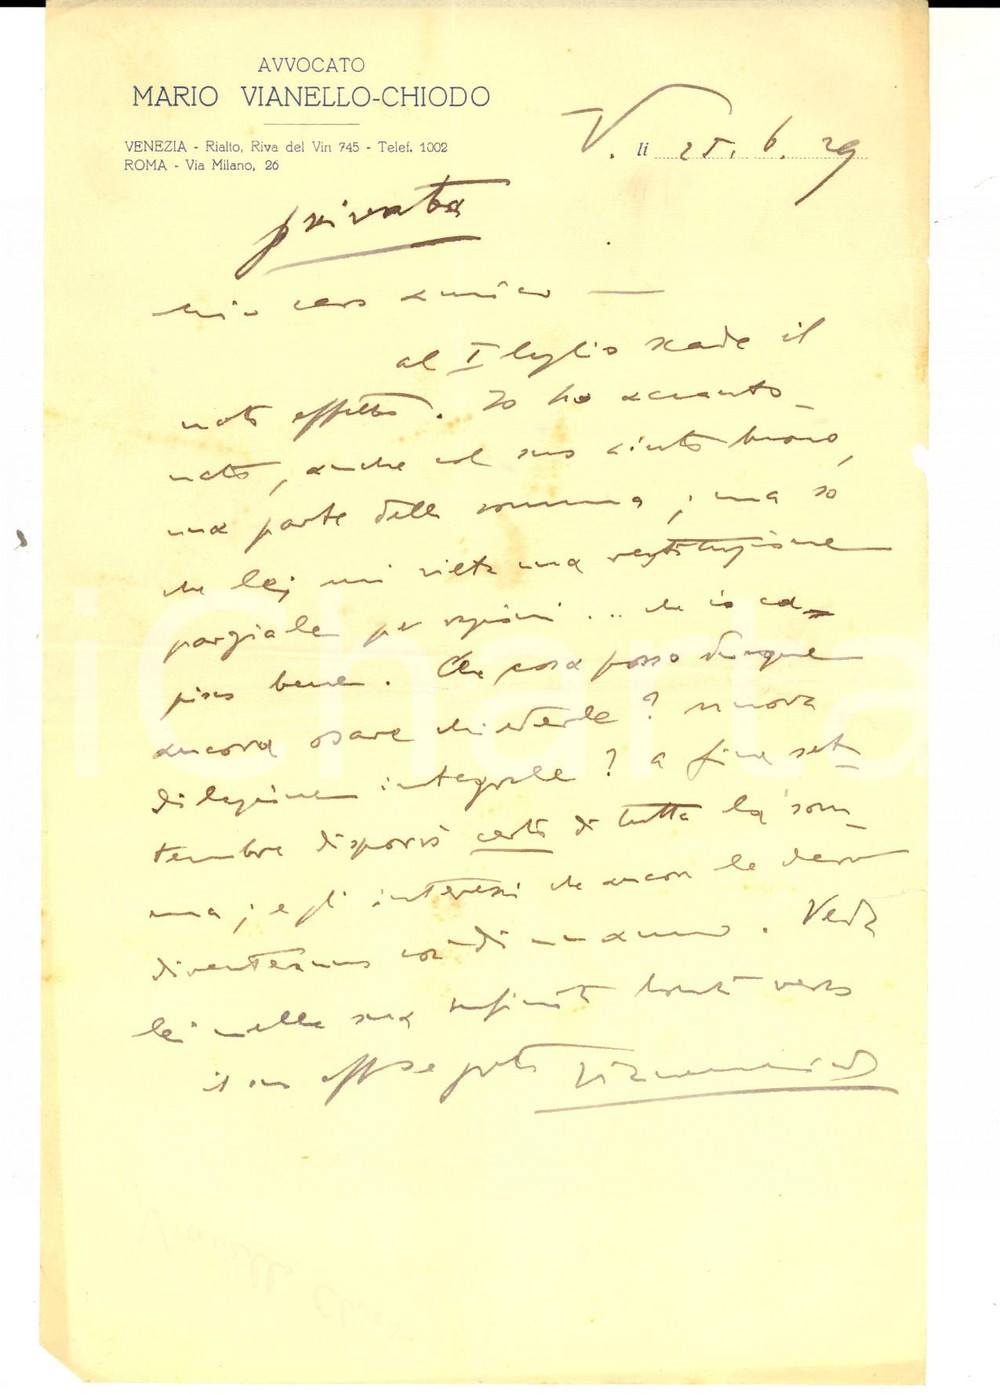 AVVOCATO
MARIO VIANELLO-CHIODO
VENEZIA - Rialto, Riva del Vin 745 - Telef. 1002
ROMA - Via Milano, 26
V. li 25. 6. 29
privata
mio caro amico —
al I luglio scade il
noto effetto. Io ho accanto-
nato, anche col suo aiuto buono,
una parte della somma; ma so
che lei mi vieta una restituzione
parziale per ragioni ... che io ca-
pisco bene. Che cosa posso dunque
ancora osare chiederle? nuova
dilazione integrale? a fine set-
tembre disporrò certo di tutta la som-
ma; e gli interessi che ancora le devo
diventeranno così di un anno. Veda
lei nella sua infinita bontà verso
il suo aff e grato
iCharta